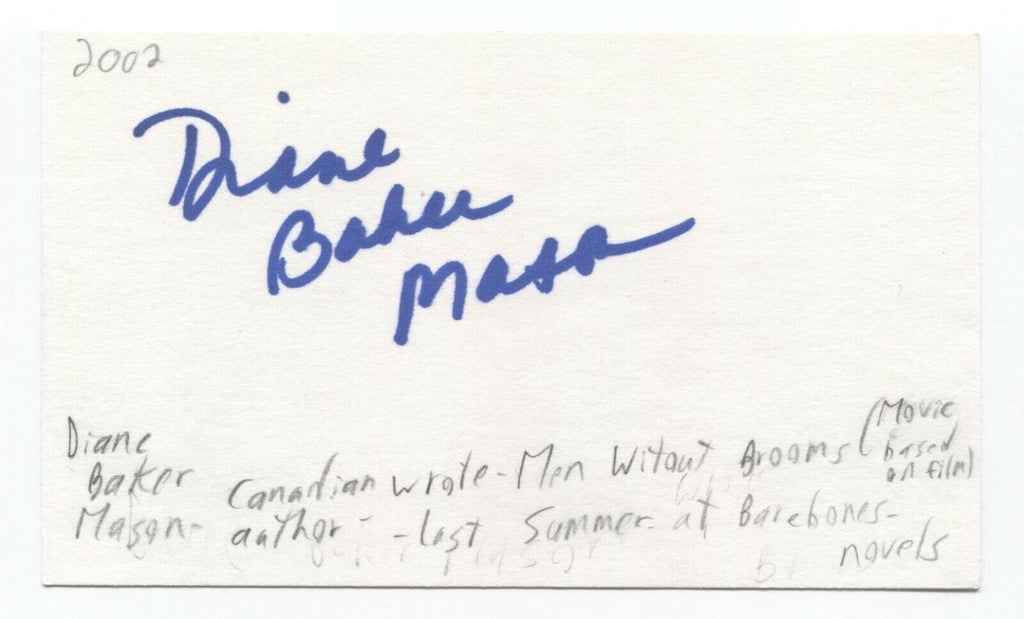 2002
Diane
Baker
Mason
Diane
Baker
Mason-
Canadian
author-
wrote - Men Witout Brooms (Movie
based
on film)
-last Summer at Barebones-
novels